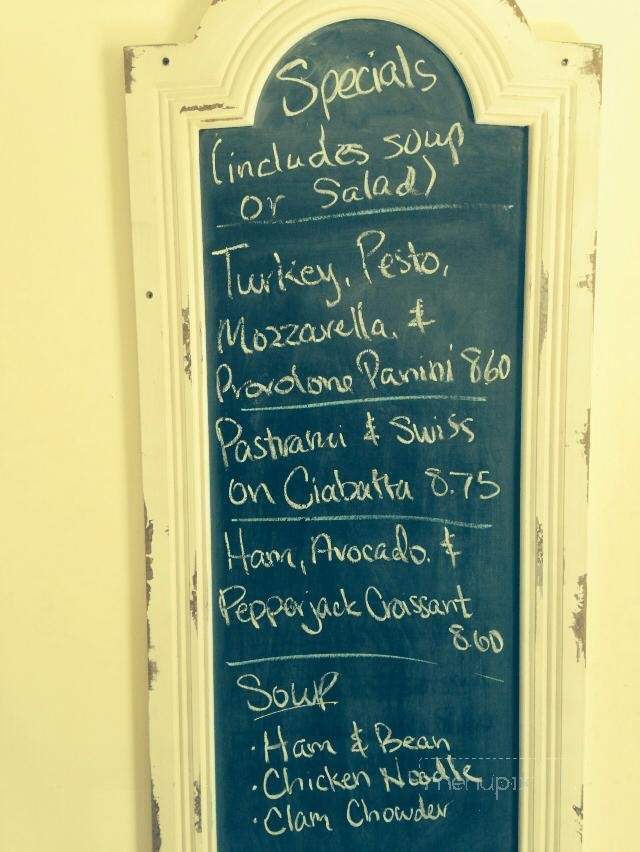 Specials
(includes soup
or Salad)
Turkey, Pesto,
Mozzarella, &
Provolone Panini 8.60
Pastrami & Swiss
on Ciabatta 8.75
Ham, Avocado, &
Pepperjack Croissant
8.60
Soup
· Ham & Bean
· Chicken Noodle
· Clam Chowder
menupix